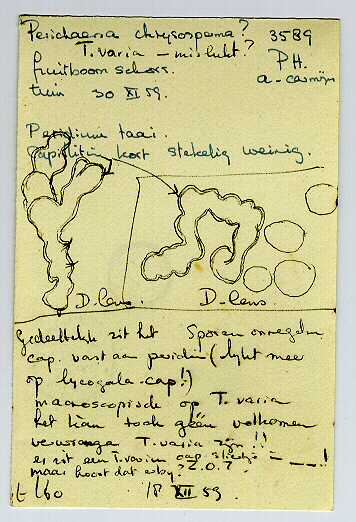 Perichaena chrysosperma? 3589
T. varia – mislukt? PH.
fruitboom schors. a-carmijn
tuin 30 XI 59.
Peridium taai.
Capillitium kort stekelig weinig.
D-lens. D-lens.
Gedeeltelijk zit het Sporen onregelm.
cap. vast aan peridium (lijkt meer
op lycogala-cap!)
macroscopisch op T. varia
het kan toch géén volkomen
T. varia zijn!!
er zit een T. varia cap. bij
maar hoort dat erbij? Z.O.?
18 XII 59.